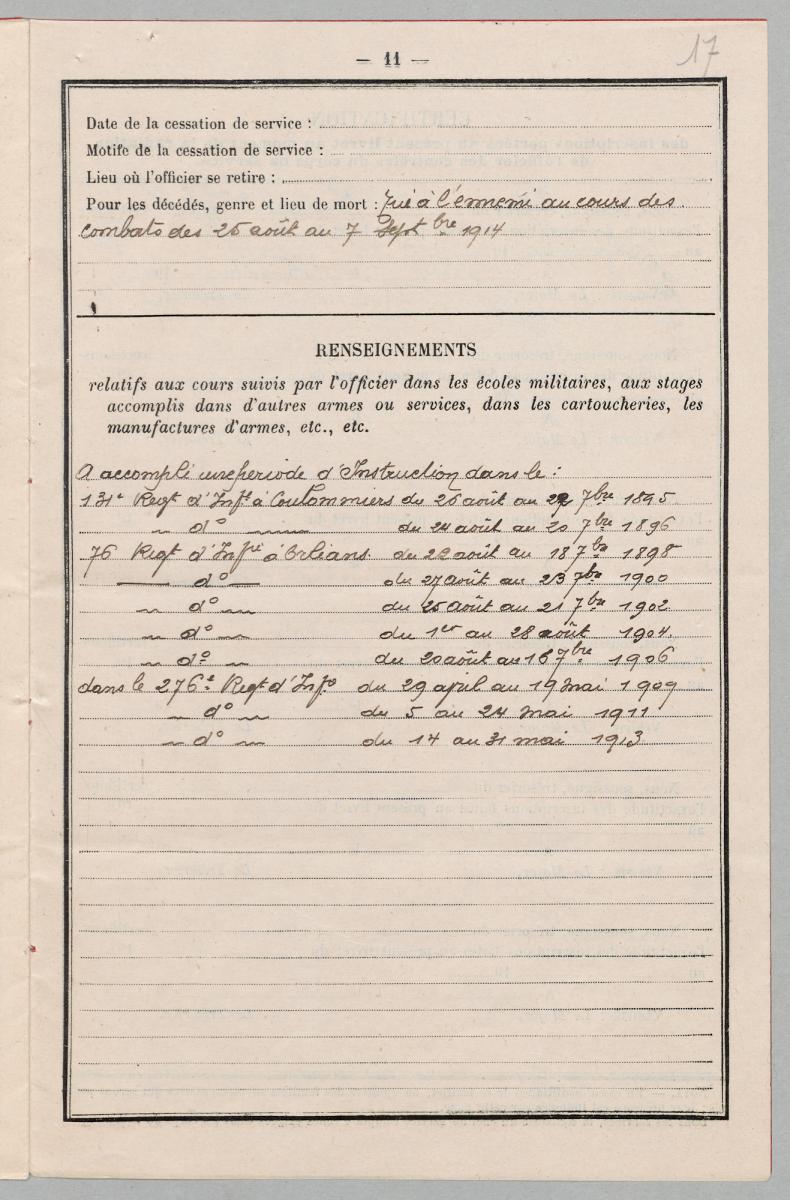 — 11 —
17
Date de la cessation de service :
Motifs de la cessation de service :
Lieu où l'officier se retire :
Pour les décédés, genre et lieu de mort : Tué à l'ennemi au cours des
combats des 26 août au 7 Septbre 1914
RENSEIGNEMENTS
relatifs aux cours suivis par l'officier dans les écoles militaires, aux stages
accomplis dans d'autres armes ou services, dans les cartoucheries, les
manufactures d'armes, etc., etc.
A accompli une periode d'Instruction dans le :
131e Regt d'Inft à Coulommiers du 26 août au 7bre 1895
— do — du 24 août au 20 7bre 1896
76 Regt d'Infie à Orléans du 22 août au 18 7bre 1898
— do — du 27 août au 23 7bre 1900
— do — du 25 août au 21 7bre 1902
— do — du 1er au 28 août 1904.
— do — du 20 août au 16 7bre 1906
dans le 276e Regt d'Infie du 29 april au 19 Mai 1909
— do — du 5 au 24 Mai 1911
— do — du 14 au 31 mai 1913